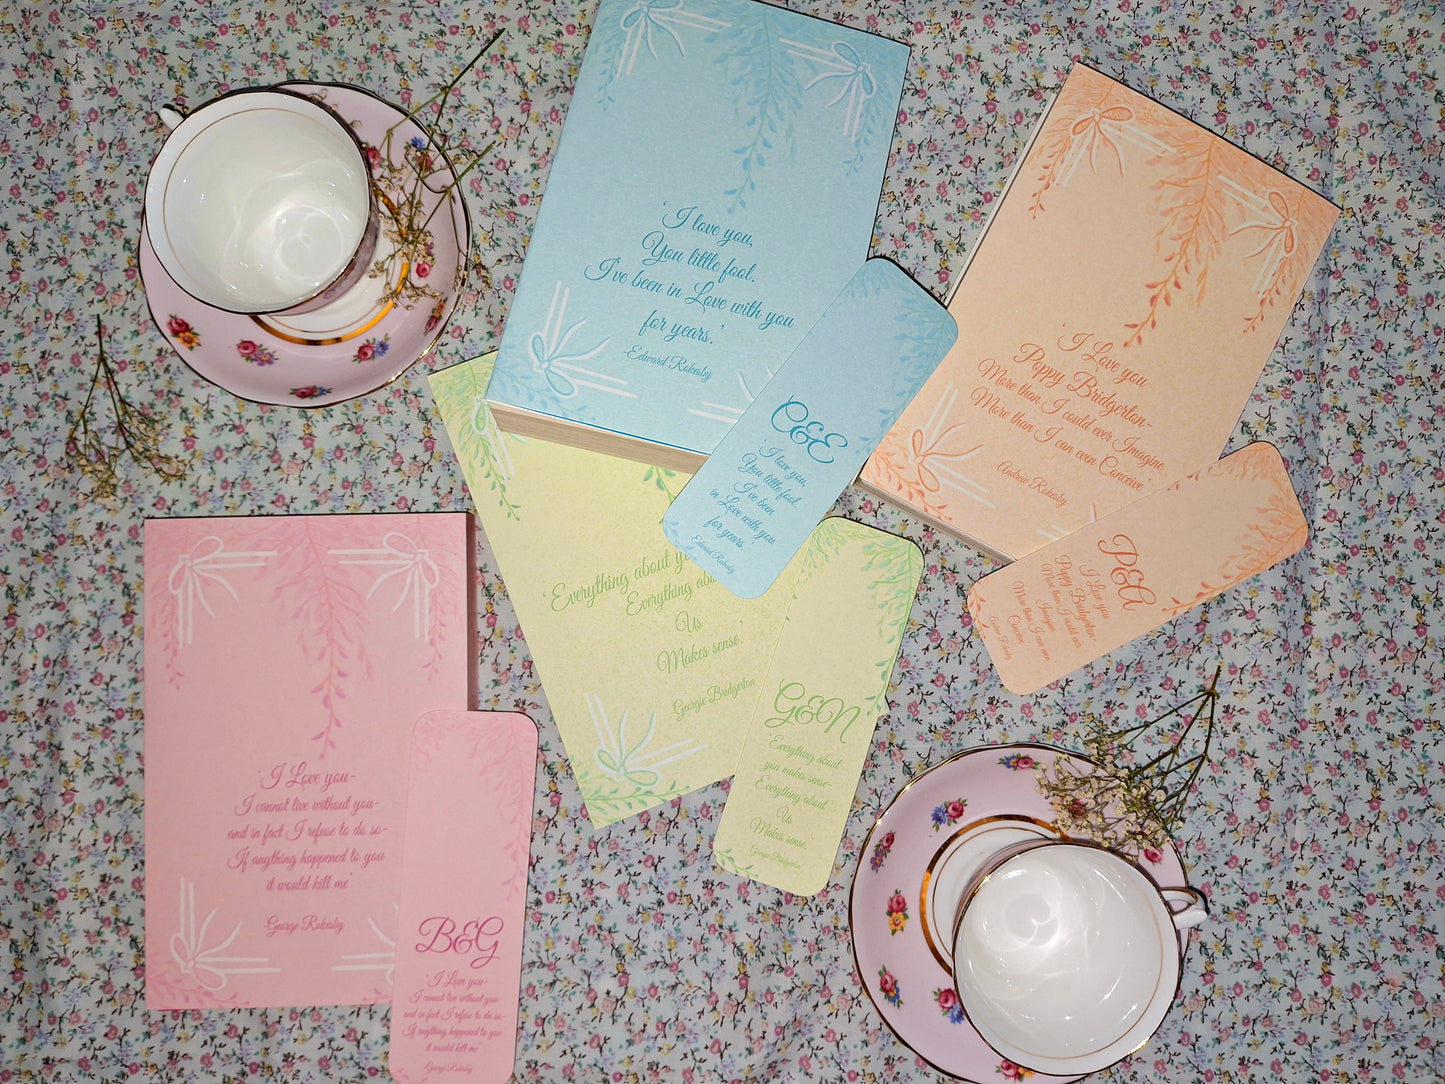 'I love you,
You little fool.
I've been in Love with you
for years.'
-Edward Rokesby
'I Love you
Poppy Bridgerton-
More than I could ever Imagine
More than I can even Conceive'
Andrew Rokesby
C&E
'I love you,
You little fool.
I've been
in Love with you
for years.'
Edward Rokesby
P&A
I Love you
Poppy Bridgerton-
More than I could ever
Imagine
More than I can even
Conceive'
'Everything about
Everything
Us
Makes sense.'
Georgie Bridgerton
G&N
'Everything about
you makes sense-
Everything about
Us
Makes sense.
Georgie Bridgerton
'I Love you-
I cannot live without you-
and in fact I refuse to do so-
If anything happened to you
it would kill me'
-George Rokesby
B&G
'I Love you-
I cannot live without you-
and in fact I refuse to do so-
If anything happened to you
it would kill me'
George Rokesby